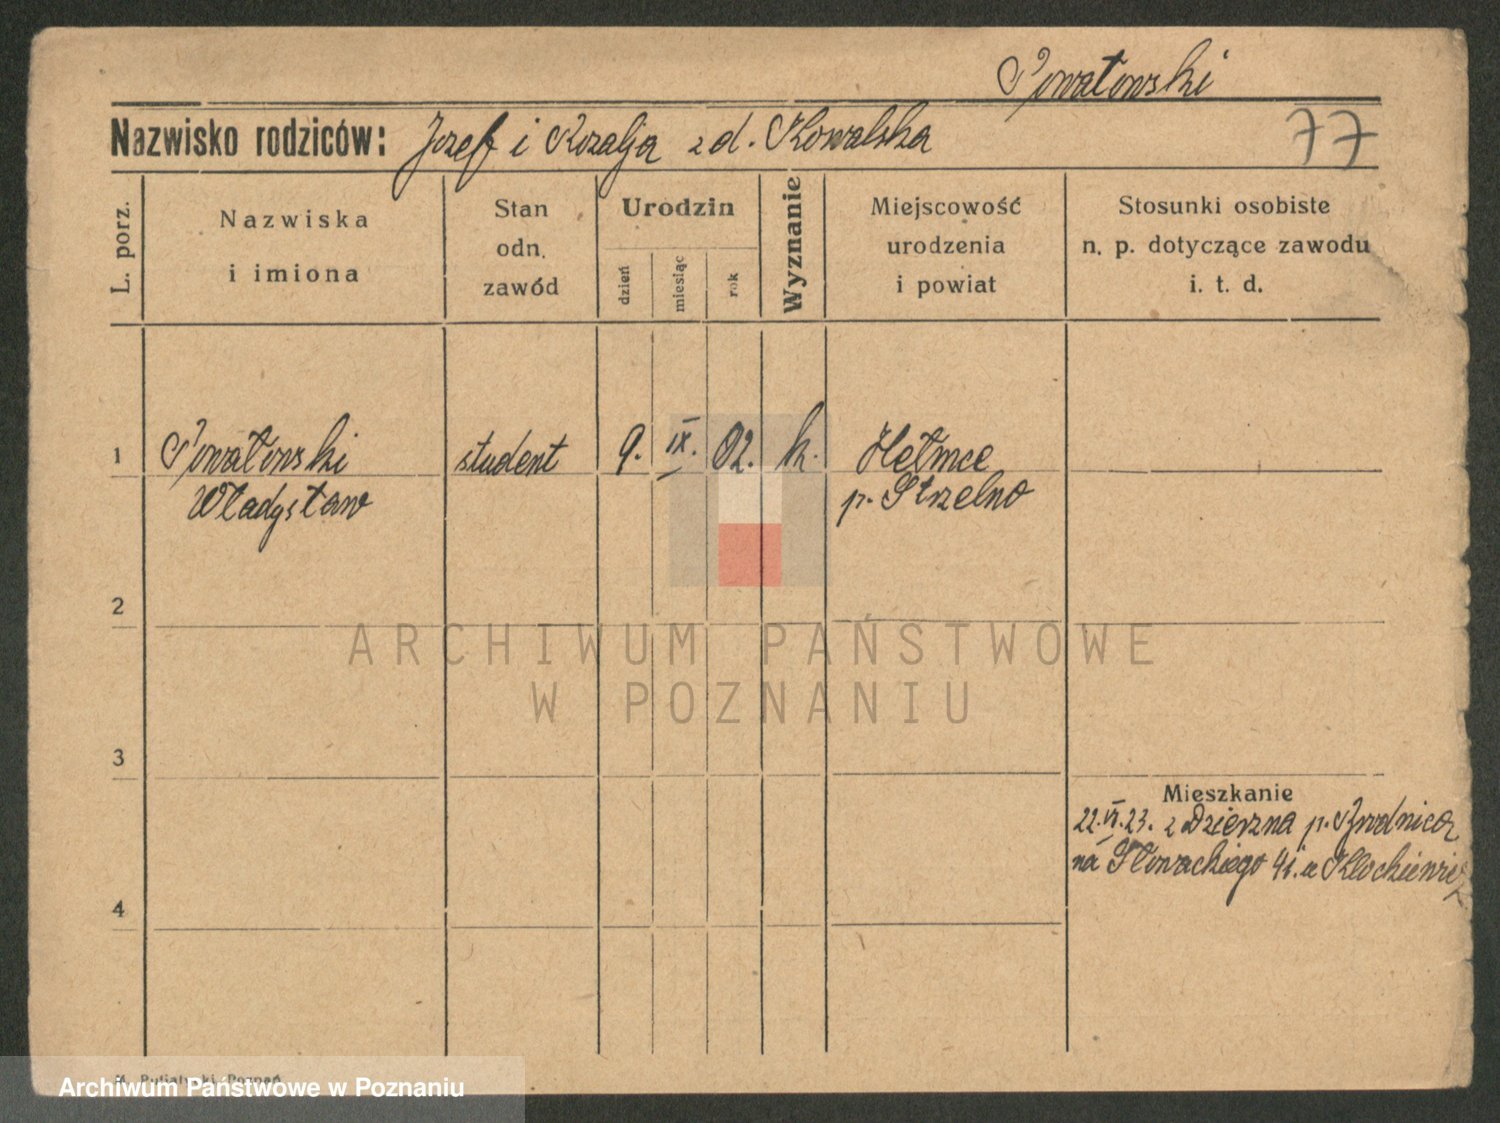 Powałowski
Nazwisko rodziców: Józef i Rozalja z d. Kowalska
77
L. porz.
Nazwiska
i imiona
Stan
odn.
zawód
Urodzin
dzień
miesiąc
rok
Wyznanie
Miejscowość
urodzenia
i powiat
Stosunki osobiste
n. p. dotyczące zawodu
i. t. d.
1
Powałowski
Władysław
student
9. IX. 02. k.
p. Strzelno
2
ARCHIWUM PAŃSTWOWE
W POZNANIU
3
Mieszkanie
22.VI.23. z p.
na Słowackiego
4
Poznań
Archiwum Państwowe w Poznaniu